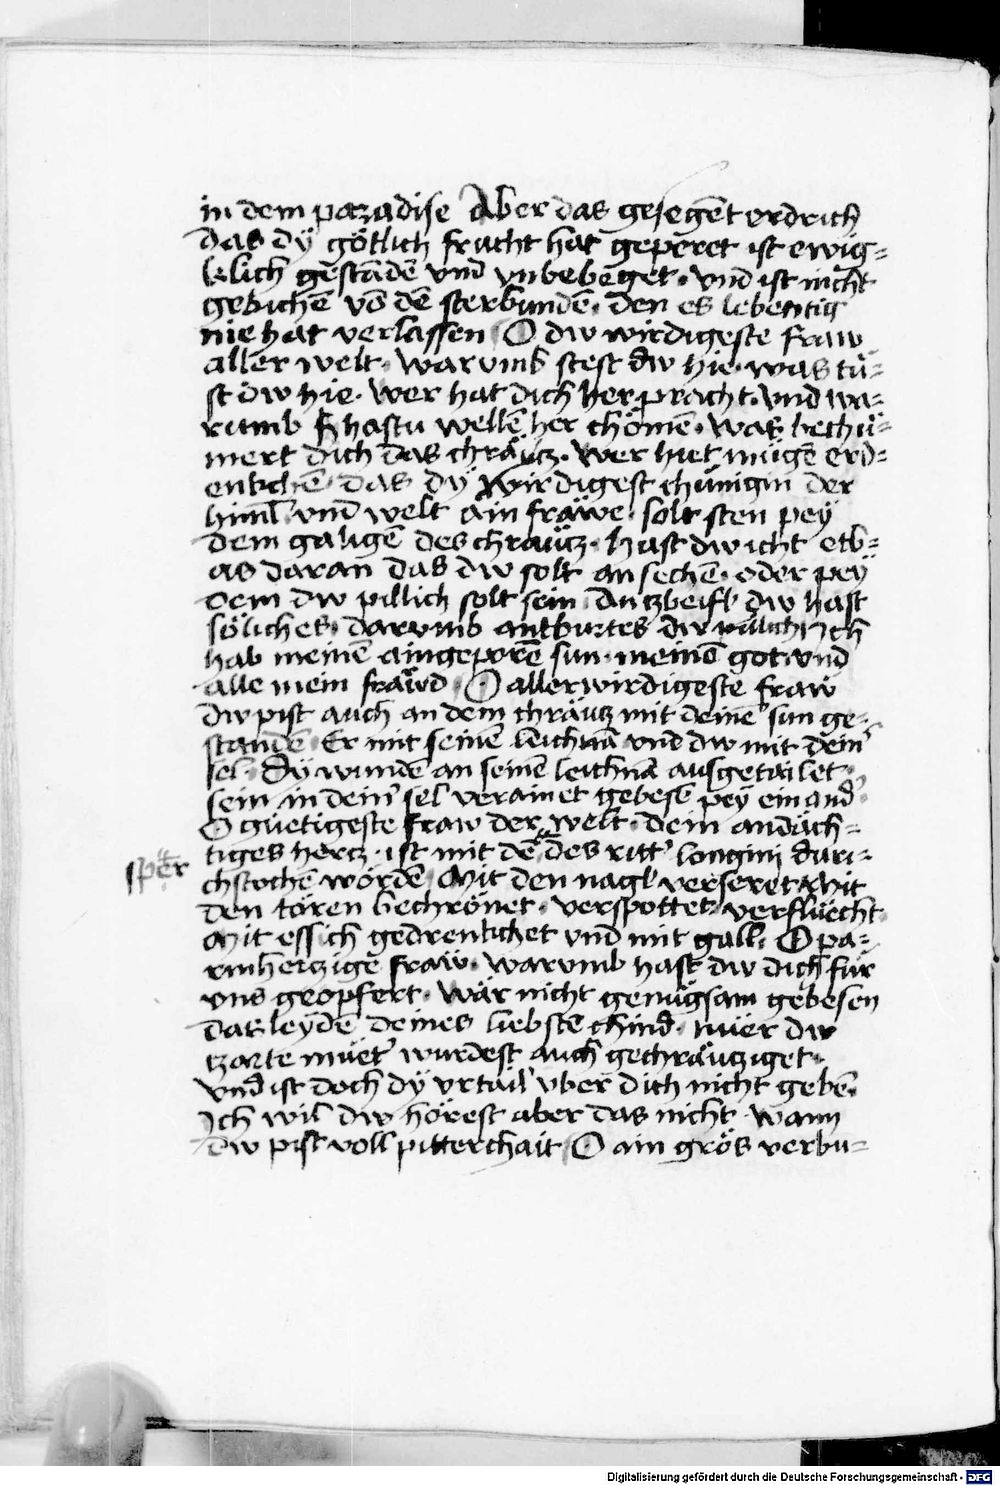 in dem paradise Aber das gesegēt erdrich
das dÿ götlich frucht hat geperet ist ewig=
klich gestādē vnd vnbebēget · vnd ist nicht
gebichē vō dē sterbundē · den es lebentig
nie hat verlassen O dw wirdigeste fraw
aller welt · warvmb stest dw hie · was tü=
st dw hie · wer hat dich her pracht · vnd wa=
rumb hastu wellē her chömē · was bechü=
mert dich das chräutz · wer hiet mügē erd=
enkchē das dÿ wirdigest chünigin der
himl vnd welt ain fräwe solt sten peÿ
dem galigē des chräutz · hast dw icht etb=
as daran das dw solt an sechē · oder peÿ
dem dw pillich solt sein An tzbeifl dw hast
söliches · darvmb antburtes dw pillich Ich
hab meinē aingeporē sun · meinē got vnd
alle mein fräwd · O allerwirdigeste fraw
dw pist auch an dem chräutz mit deinē sun ge=
standē Er mit seinē leichnā vnd dw mit dein'
sel · dÿ wundē an seinē leichnā ausgetailet
sein in dein' sel verainet gebesē peÿ ein and'
O güetigeste fraw der welt · dein andäch=
tiges hercz · ist mit dē des ritt' longini dur=
sper
chstochē wordē Mit den nagl' verseret Mit
den tören bechrönet · verspottet verflüecht
Mit essich gedrenkchet vnd mit gall · O pa=
rmhertzige fraw · warvmb hast dw dich für
vns geopfert · wär nicht genügsam gebesen
das leÿdē deines liebstē chind · nüer dw
tzarte müet' wurdest auch gechräutziget ·
vnd ist doch dÿ vrtail vber dich nicht gebē
Ich wil dw hörest aber das nicht · wann
dw pist voll pitterchait O ain grös verbu=
Digitalisierung gefördert durch die Deutsche Forschungsgemeinschaft - DFG